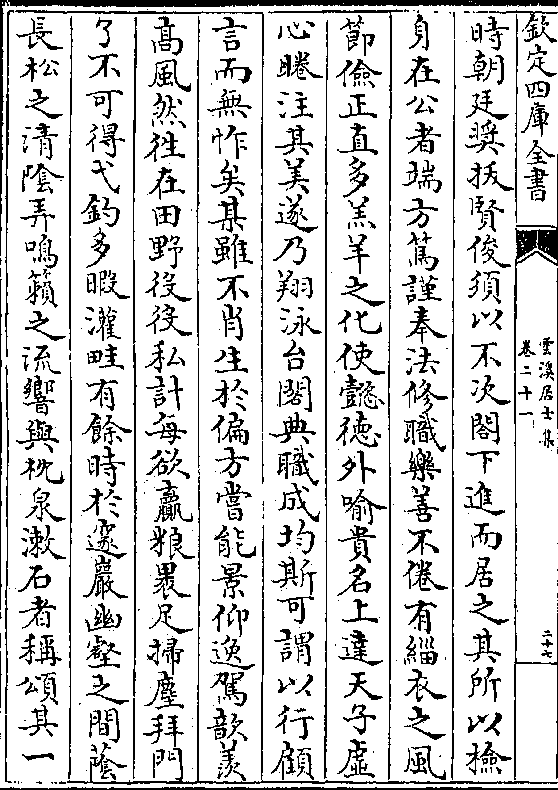 欽定四庫全書
雲溪居士集
卷二十一
二十七
時朝廷奬拔賢俊須以不次閣下進而居之其所以檢
身在公者端方篤謹奉法修職樂善不倦有緇衣之風
節儉正直多羔羊之化使懿德外喻貴名上達天子虛
心睠注其美遂乃翔泳台閣典職成均斯可謂以行顧
言而無怍矣某雖不肖生於偏方嘗能景仰逸駕歆羡
高風然徃在田野役役私計每欲贏粮裹足掃塵拜門
了不可得弋釣多暇灌畦有餘時於邃巖幽壑之間蔭
長松之清陰弄鳴籟之流響與枕泉漱石者稱頌其一